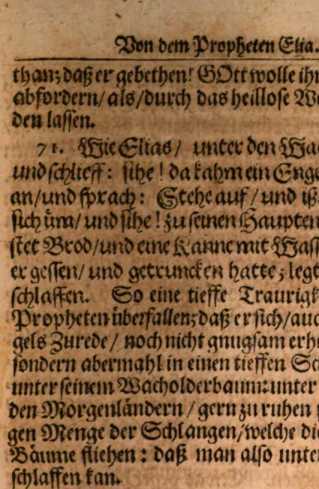 Von dem Propheten Elia.
than; daß er gebethen! GOtt wolle ihn
abfordern/ als/ durch das heillose We
den lassen.
71. Wie Elias/ unter den Wa
und schlieff: sihe! da kahm ein Enge
an/ und sprach: Stehe auf/ und iß
sich üm/ und sihe! zu seinen Haupten
stet Brod/ und eine Kanne mit Wass
er gessen/ und getruncken hatte; legt
schlaffen. So eine tieffe Traurigk
Propheten überfallen; daß er sich/ auc
gels Zurede/ noch nicht gnugsam erh
sondern abermahl in einen tieffen Sc
unter seinem Wacholderbaum: unter
den Morgenländern/ gern zu ruhen
gen Menge der Schlangen/ welche di
Bäume fliehen: daß man also unte
schlaffen kan.